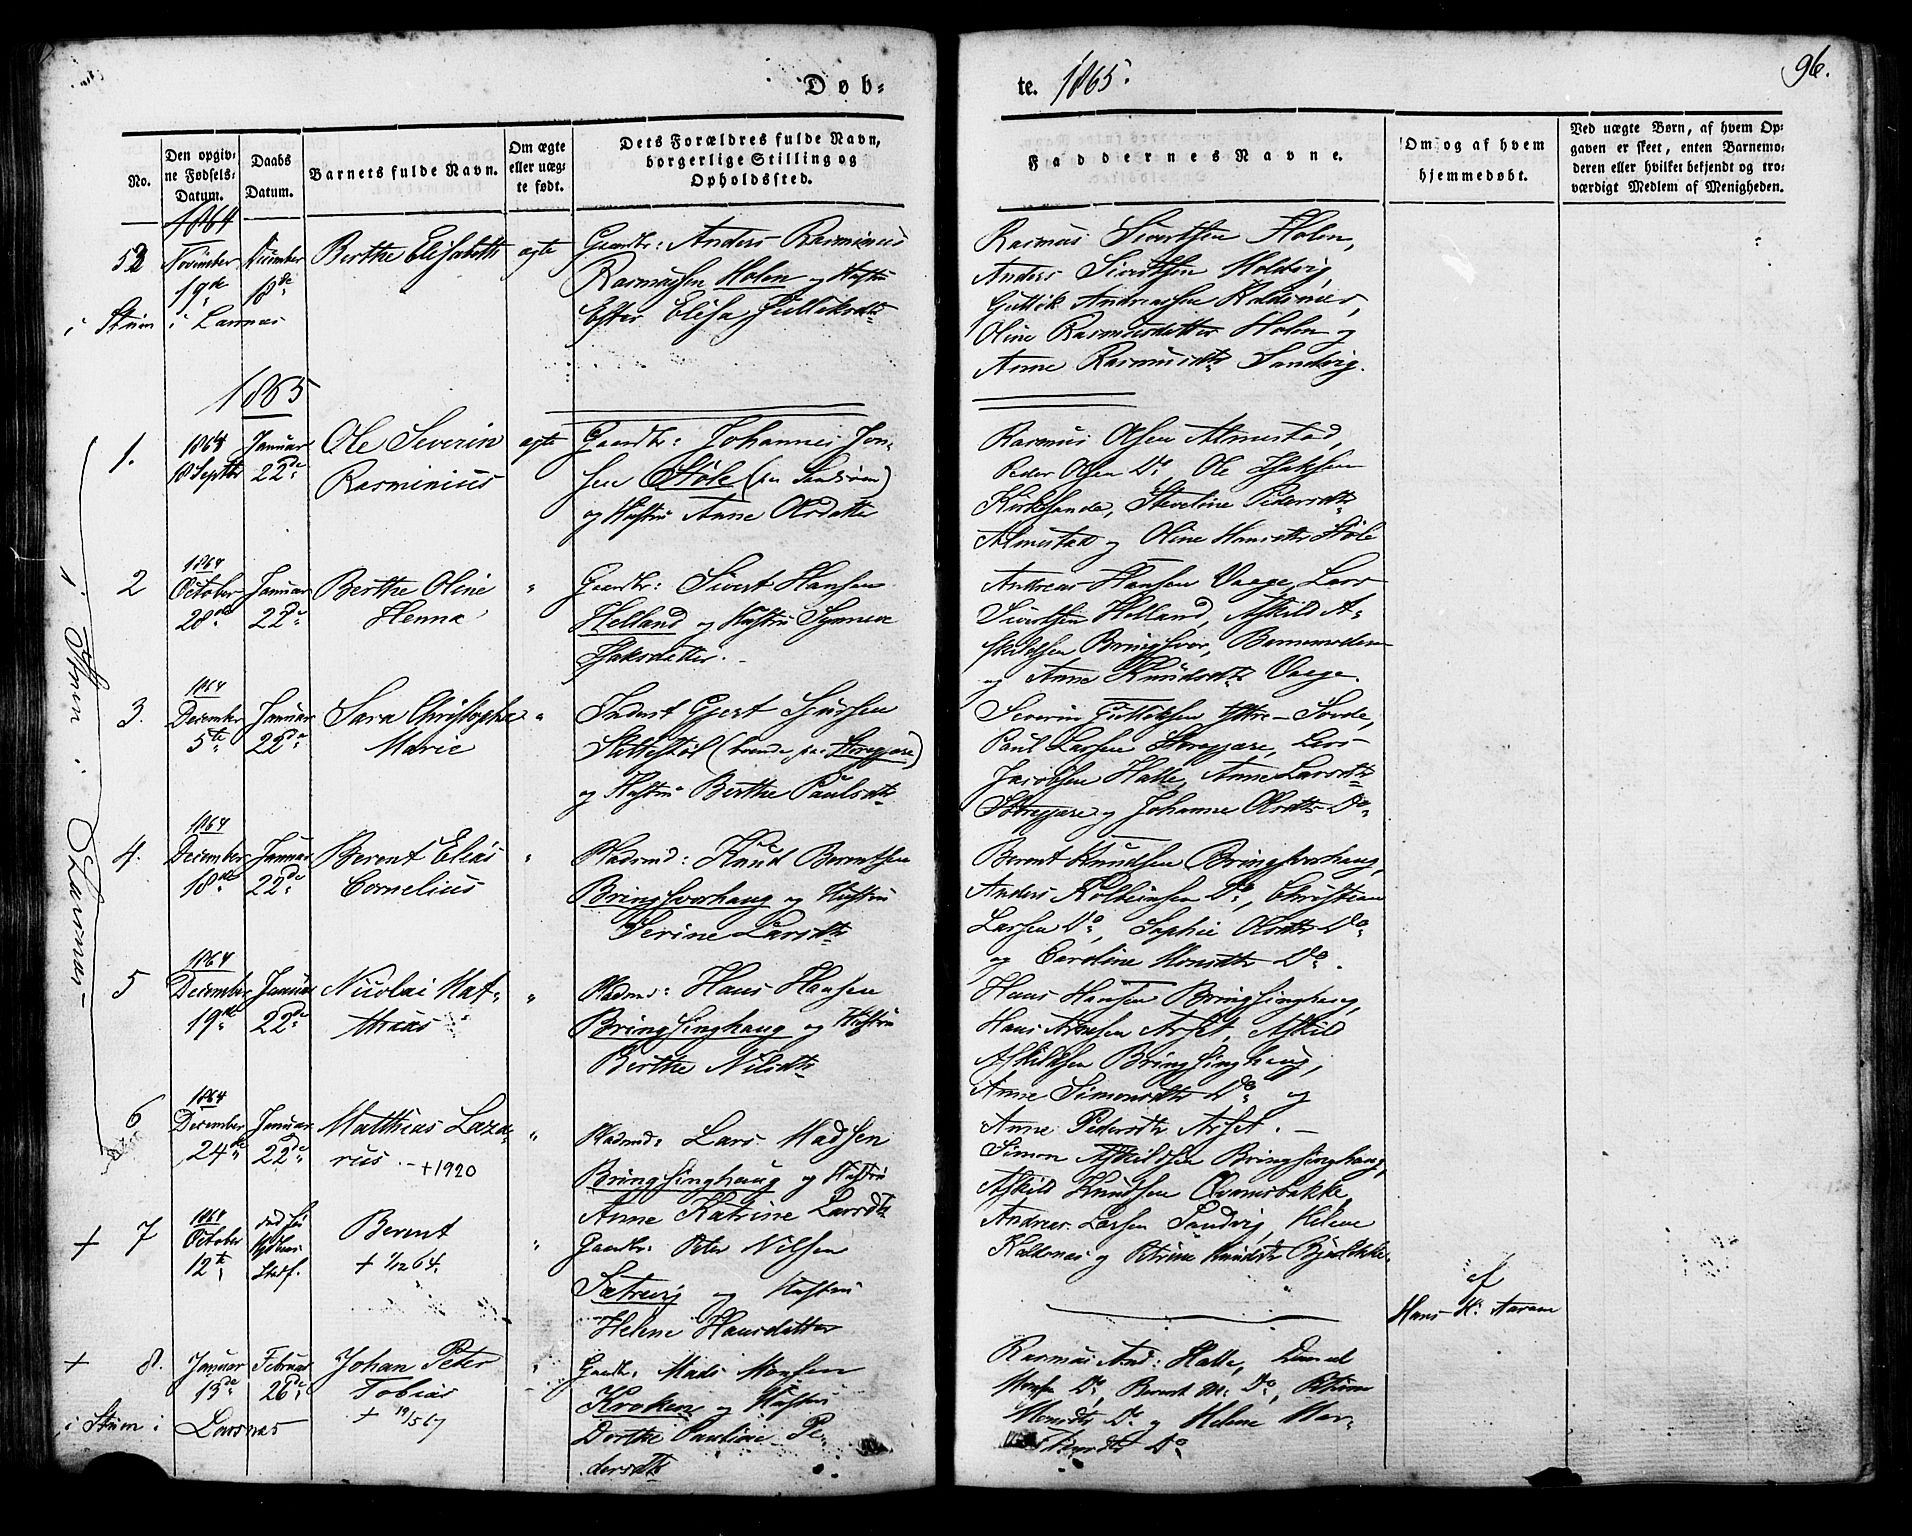 Døb-
te. 1865.
96.
No.
Den opgiv-
ne Fødsels-
Datum.
Daabs
Datum.
Barnets fulde Navn.
Om ægte
eller uæg-
te født.
Dets Forældres fulde Navn,
borgerlige Stilling og
Opholdssted.
Faddernes Navne.
Om og af hvem
hjemmedøbt.
Ved uægte Børn, af hvem Op-
gaven er skeet, enten Barnemo-
deren eller hvilket bekjendt og tro-
værdigt Medlem af Menigheden.
1864
52
November
19de
December
18de
Berthe Elisabeth
ægte
Gaardbr: Anders Rasminus
Rasmussen Holen og Hustru
Ester Elisa Guttoksdtr
Rasmus Sivertsen Holen,
Anders Sivertsen Moldvig,
Guttok Andreassen Koldsnes,
Oline Rasmusdatter Holen og
Anne Rasmusdtr Sandvig.
i Stuen i Larsnæs
1865
1.
1864
18 Septbr
Januar
22de
Ole Severin
Rasminius
ægte
Gaardbr: Johannes Jon-
sen Støle (paa Sandøen)
og Hustru Anne Olsdatter
Rasmus Olsen Almestad,
Peder Olsen Do, Ole Isaksen
Kirkesande, Steveline Pedersdtr
Almestad og Oline Hansdtr Støle
2
1864
October
28de
Januar
22de
Berthe Oline
Henna
"
Gaardbr: Sivert Hansen
Helland og Hustru Synneve
Isaksdatter.
Andreas Hansen Vaage, Lars
Sivertsen Helland, Askild A-
skildsen Bringsvor, Barnemoderen
og Anne Knudsdtr Vaage.
3.
1864
December
5te
Januar
22de
Sara Christopha
Marie
"
Inderst Gjert Sjursen
Slettestøl (boende paa Storegjære)
og Hustru Berthe Paulsdtr
Severin Guttoksen Ytre-Sørde,
Paul Larsen Storegjære, Lars
Jacobsen Halle, Anne Larsdtr
Storegjære og Johanne Olsdtr Do
4.
1864
December
18de
Januar
22de
Berent Elias
Cornelius
"
Pladsmd: Knud Berentsen
Bringsvorhaug og Hustru
Serine Larsdtr
Berent Knudsen Bringsvorhaug,
Anders Kolbeinsen Do, Christian
Larsen Do, Sophie Olsdtr Do
og Caroline Monsdtr Do.
5
1864
December
19de
Januar
22de
Nicolai Mat-
thæus
"
Pladsmd: Hans Hansen
Bringsinghaug og Hustru
Berthe Nilsdtr
Hans Hansen Bringsinghaug,
Hans Arnesen Arset, Askild
Askildsen Bringsinghaug,
Anne Simonsdtr Do og
Anne Pedersdtr Arset.
6
1864
December
24de
Januar
22de
Matthias Laza-
rus. + 1920
"
Pladsmd: Lars Madsen
Bringsinghaug og Hustru
Anne Katrine Larsdtr
Simon Askildsen Bringsinghaug,
Askild Knudsen Qvamsbakke,
Andreas Larsen Sandvig, Helene
Koldsnes og Petrine Knudsdtr
i Stuen i Larsnæs
+ 7
1864
October
12te
Berent
+ 1/12 64.
"
Gaardbr: Peter Nilsen
Sætrevig og Hustru
Helene Hansdatter
af
Hans H. Aaram
+ 8.
Januar
13de
Februar
26de
Johan Peter
Tobias
+ 19/5 67
"
Gaardbr: Mads Monsen
Kroken og Hustru
Dorthe Pauline Pe-
dersdtr
Rasmus And: Halle, Daniel
Monsen Do, Berent M. Do,
Monsdtr Do og Helene
Do
i Stuen i Larsnæs